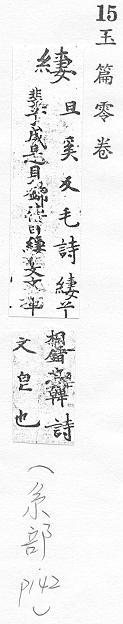 15玉篇零卷
緀
且奚反毛詩緀兮
斐兮成是貝錦傳曰緀斐文章
相錯也韓詩
文皃也
(糸部P142)